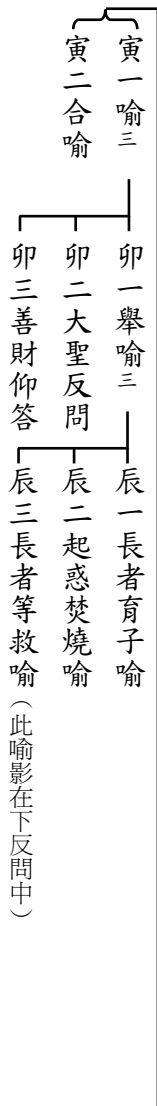 寅一喻三
寅二合喻
卯一舉喻三
卯二大聖反問
卯三善財仰答
辰一長者育子喻
辰二起惑焚燒喻
辰三長者等救喻（此喻影在下反問中）